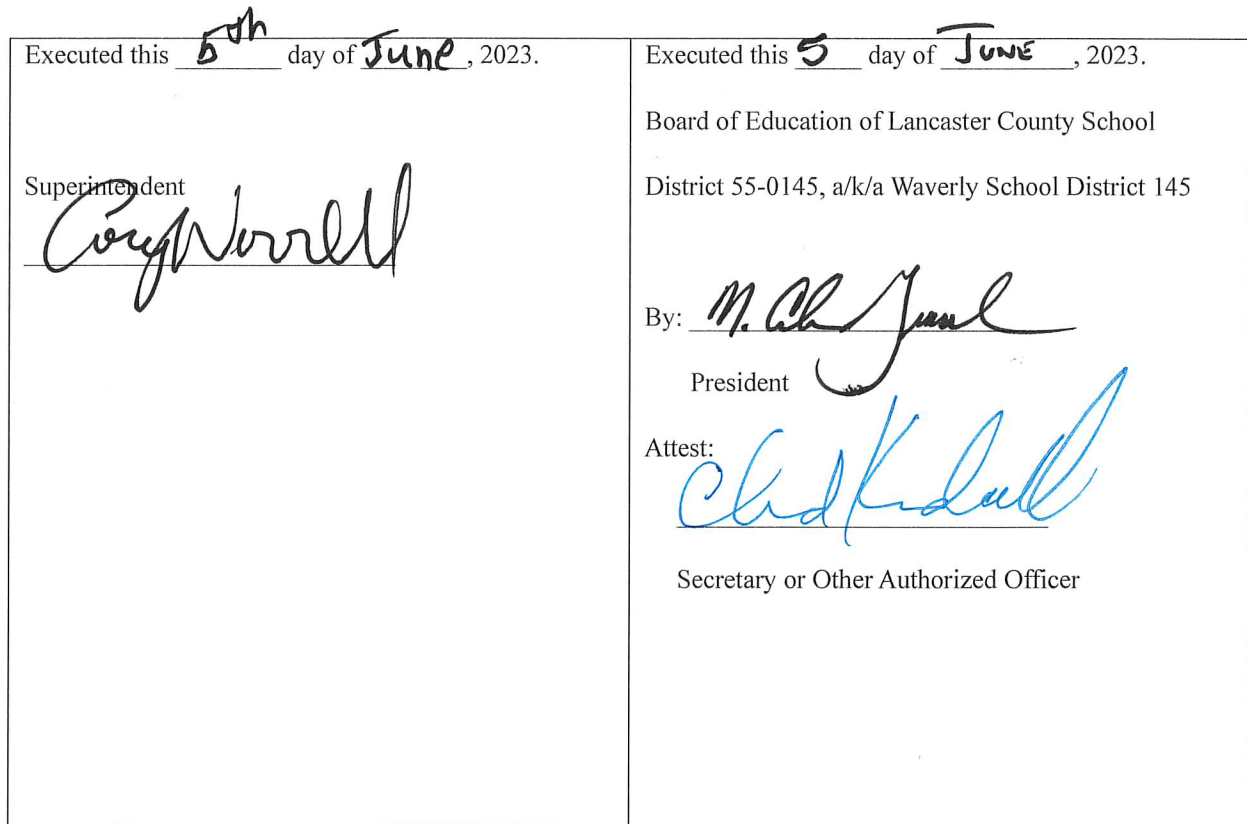 Executed this 5th day of June, 2023.
Superintendent
Cory Worrell
Executed this 5 day of JUNE, 2023.
Board of Education of Lancaster County School
District 55-0145, a/k/a Waverly School District 145
By: M.
President
Attest:
Chad Kendall
Secretary or Other Authorized Officer